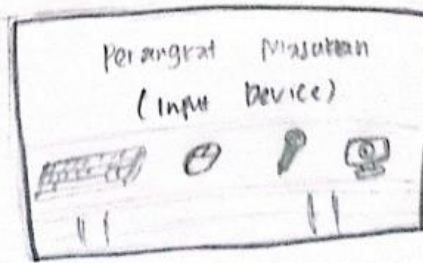 Perangkat Masukan
(Input Device)